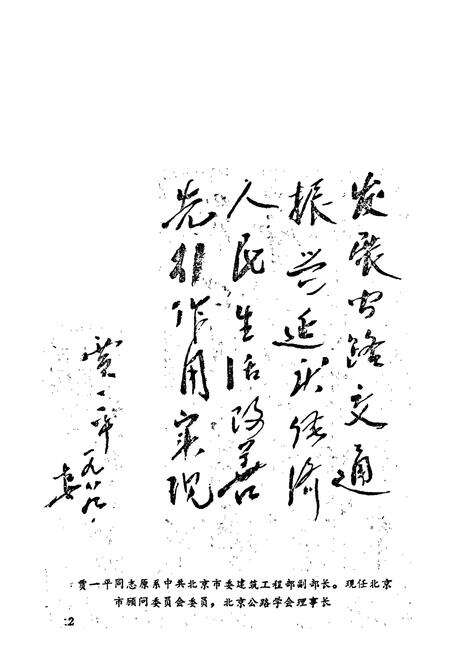 发展公路交通
振兴延庆经济
人民生活改善
先行作用实现
贾一平
一九八八、
贾一平同志原系中共北京市委建筑工程部副部长。现任北京
市顾问委员会委员，北京公路学会理事长
2